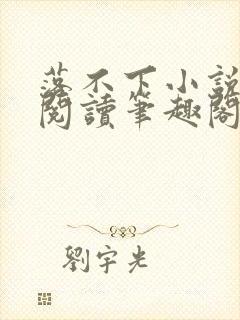 落不下小說
閱讀筆趣閣
劉宇光